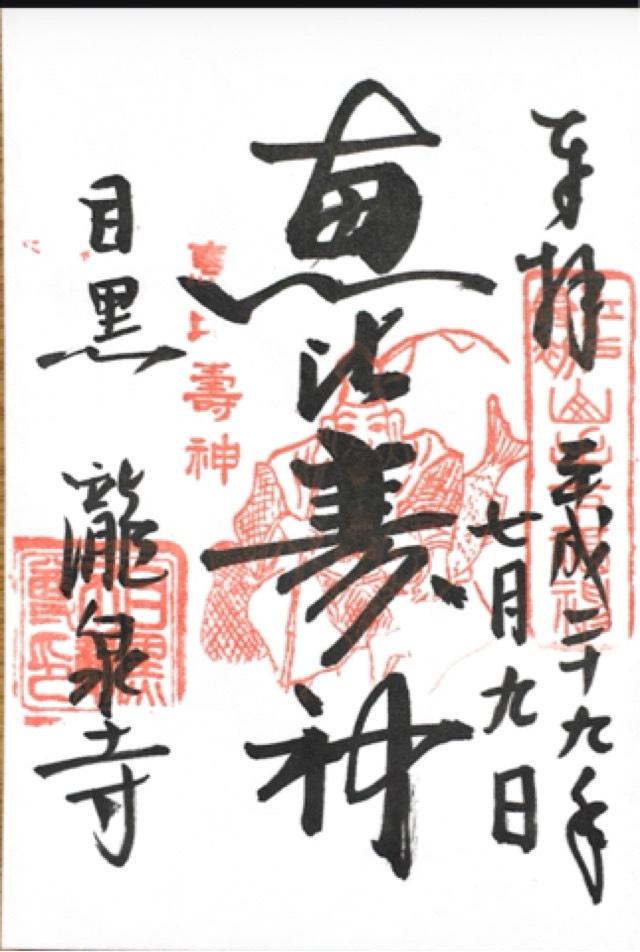 奉拝 平成二十九年
七月九日
恵比寿神
壽神
目黒 瀧泉寺